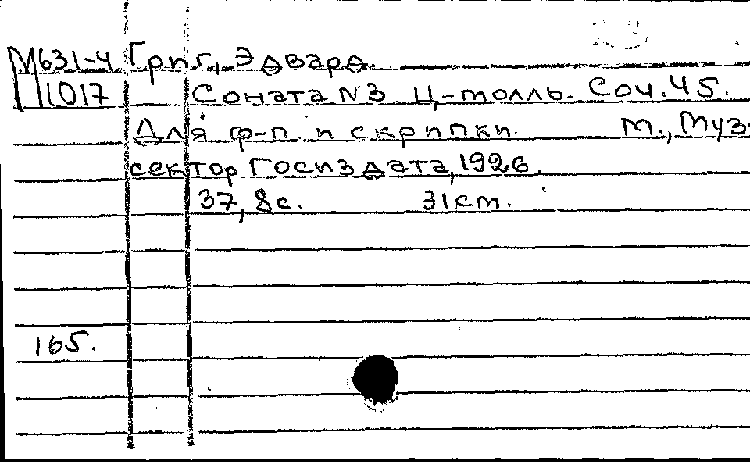 М631-4 Григ, Эдвард.
Ц1017 Соната N3 Ц-молль. Соч. 45.
Для ф-п. и скрипки. М., Муз-
сектор Госиздата, 1926.
37, 8с. 31см.
165.